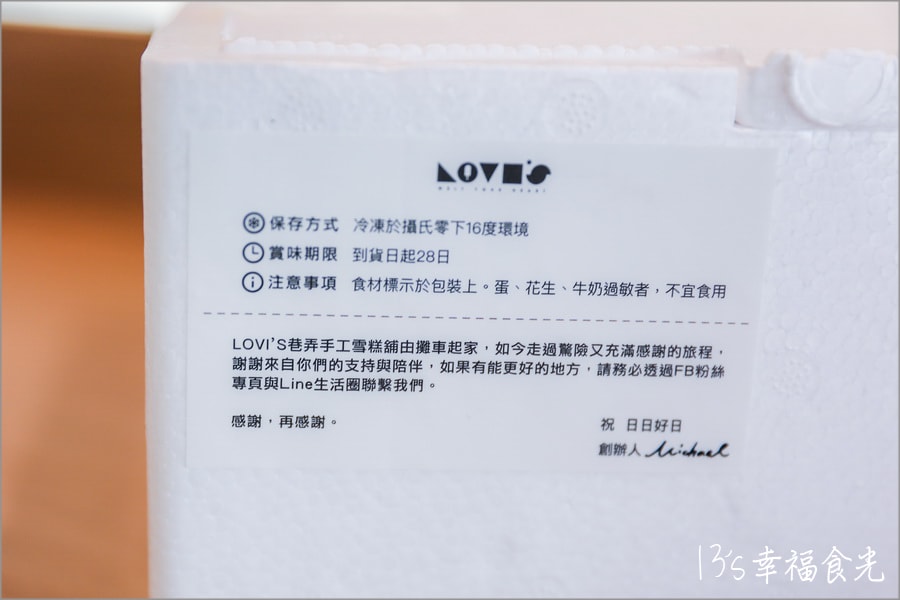 LOVI'S
MELT YOUR HEART
保存方式 冷凍於攝氏零下16度環境
賞味期限 到貨日起28日
注意事項 食材標示於包裝上。蛋、花生、牛奶過敏者，不宜食用
LOVI'S巷弄手工雪糕舖由攤車起家，如今走過驚險又充滿感謝的旅程，
謝謝來自你們的支持與陪伴，如果有能更好的地方，請務必透過FB粉絲
專頁與Line生活圈聯繫我們。
感謝，再感謝。
祝 日日好日
創辦人 Michael
13's幸福食光